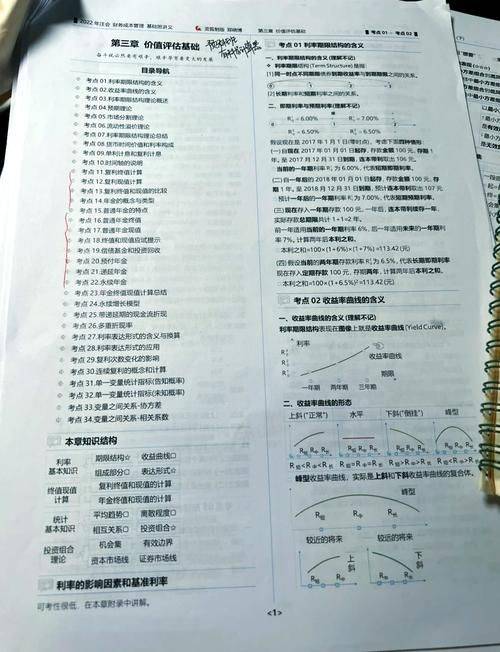 2022年注会 财务成本管理 基础班讲义
第三章 价值评估基础
第三章 价值评估基础
考点 01 ~ 考点 02
目录导航
考点 01.利率期限结构的含义
考点 02.收益率曲线的含义
考点 03.利率期限结构理论概述
考点 04.预期理论
考点 05.市场分割理论
考点 06.流动性溢价理论
考点 07.利率期限结构理论总结
考点 08.货币时间价值和利率构成
考点 09.单利计息和复利计息
考点 10.时间轴的说明
考点 11.复利终值计算
考点 12.复利现值计算
考点 13.复利终值和现值的比较
考点 14.年金的概念与类型
考点 15.普通年金的特点
考点 16.普通年金终值
考点 17.普通年金现值
考点 18.终值和现值应试提示
考点 19.偿债基金和投资回收
考点 20.预付年金
考点 21.递延年金
考点 22.永续年金
考点 23.年金终值现值计算总结
考点 24.永续增长模型
考点 25.带递延期的现金流折现
考点 26.多重折现率
考点 27.利率表达形式的含义与换算
考点 28.利率表达形式的应用
考点 29.复利次数变化的影响
考点 30.连续复利的概念和计算
考点 31.单一变量统计指标(已知概率)
考点 32.单一变量统计指标(未知概率)
考点 33.变量之间关系-协方差
考点 34.变量之间关系-相关系数
本章知识结构
利率
基本知识
期限结构☆ 收益曲线□
组成部分□ 表达形式☆
终值现值
计算
复利终值和现值的计算
年金终值和现值的计算
统计
基本知识
平均趋势□ 离散程度□
相互关系□ 投资组合☆
投资组合
理论
机会集 有效边界
资本市场线 证券市场线
利率的影响因素和基准利率
可考性很低，在本章附录中讲解。
考点 01 利率期限结构的含义
一、利率期限结构的含义(理解不记)
利率期限结构(Term Structure)是指
(1)同一时点不同期限债券到期收益率与到期期限之间的关系。
(2)长期利率和短期利率之间的关系。
二、即期利率与预期利率(理解不记)
6.00% 7.00%
6.50% 6.50%
假设现在是 2017 年 1 月 1 日(零时点)，考虑下面四种情形:
(一)自现在 2017 年 01 月 01 日起存，存款金额 100 元，存期 1
年，至 2017 年 12 月 31 日到期，连本带利取出 106 元。
当前的一年期利率为 6.00%，代表短期即期利率。
(二)自一年后的 2018 年 01 月 01 日起存，存款金额 100 元，存
期 1 年，至 2018 年 12 月 31 日到期，连本带利取出 107 元。
(三)现在存入一年期存款 100 元，一年后，连本带利续存一年，
实际存款总期限共计 1+1=2 年。
前一年适用当前的一年期利率 6%，后一年适用未来的一年期利
率 7%，计算两年后本利之和。
本利之和=100×(1+6%)×(1+7%)=113.42 (元)
(四) 假设当前的两年期存款利率为 6.5%，代表长期即期利率
现在存入定期存款 100 元，存期两年，计算两年后本利之和。
本利之和=100×(1+6.5%)²=113.42 (元)
考点 02 收益率曲线的含义
一、收益率曲线的含义(理解不记)
利率期限结构表现在图像上就是收益率曲线 (Yield Curve)。
利率
收益率曲线
期限
一年期 两年期 三年期
二、收益率曲线的形态
上斜 ("正常") 水平 下斜("倒挂") 峰型
R短 R中 R长 R短 R中 R长 R短 R中 R长 R短 R中 R长
R短<R中<R长 R短=R中=R长 R短>R中>R长
峰型收益率曲线，实际是上斜和下斜收益率曲线的复合体。
峰型
R短 R中 R长
较近的将来 较远的将来
上斜
下斜
R短 R中 R中 R长
<1>